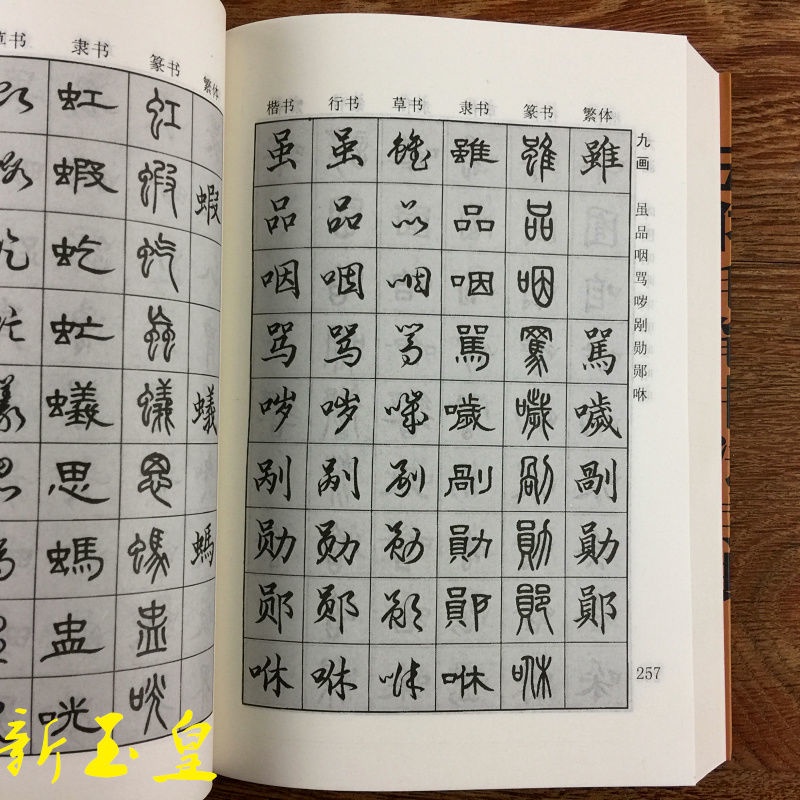 草书 隶书 篆书 繁体
虹 虹
蝦 蝦 蝦
虼 虼
虻 虻
蟻 蟻 蟻
思 思 思
螞 螞 螞
盅 盅
咣 咣
楷书 行书 草书 隶书 篆书 繁体
虽 虽 雖 雖 雖 雖
品 品 品 品 品
咽 咽 咽 咽 咽
骂 骂 骂 駡 駡 駡
哕 哕 噦 噦 噦 噦
剐 剐 剮 剮 剮 剮
勋 勋 勋 勛 勛 勛
郧 郧 郧 鄖 鄖 鄖
咻 咻 咻 咻 咻
九画 虽品咽骂哕剐勋郧咻
257
新玉皇